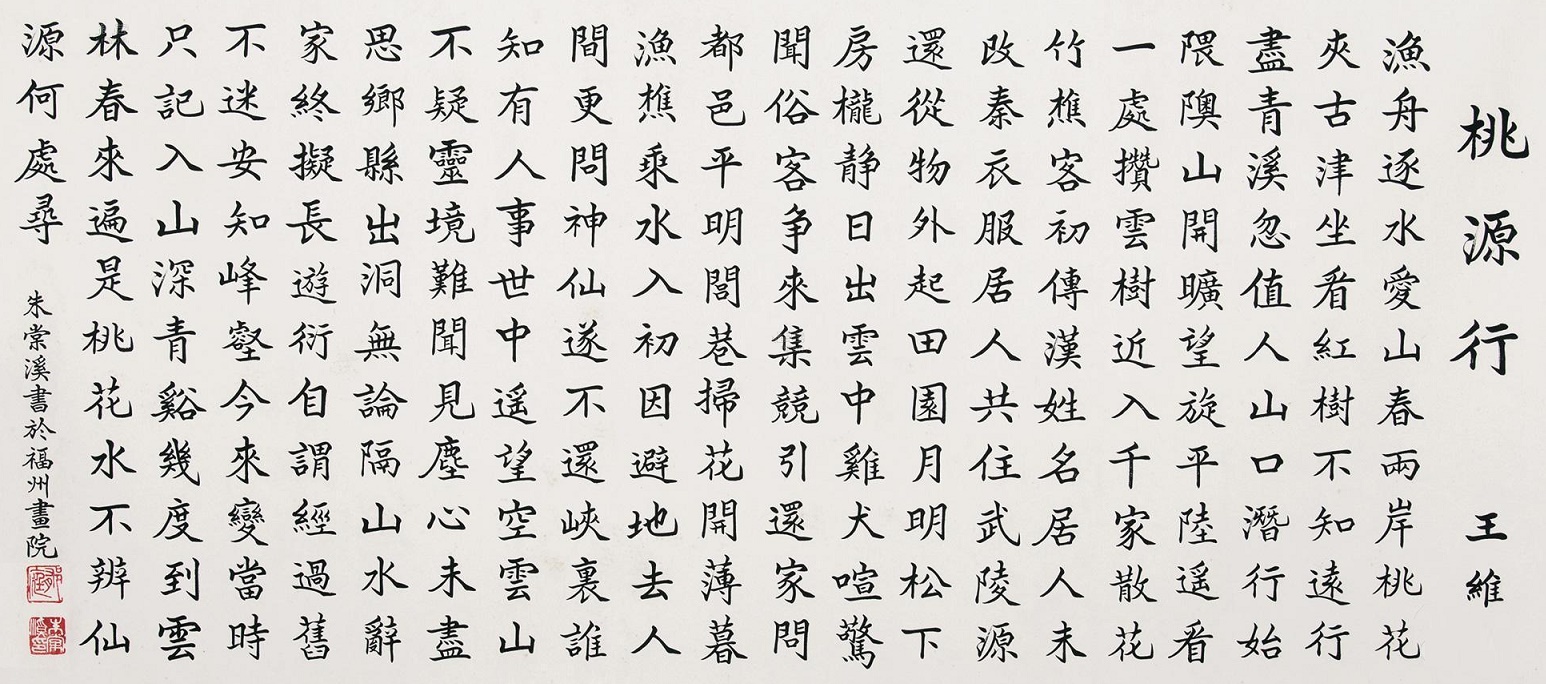 桃源行　王維
漁舟逐水愛山春兩岸桃花
夾古津坐看紅樹不知遠行
盡青溪忽值人山口潛行始
隈隩山開曠望旋平陸遥看
一處攢雲樹近入千家散花
竹樵客初傳漢姓名居人未
改秦衣服居人共住武陵源
還從物外起田園月明松下
房櫳静日出雲中雞犬喧驚
聞俗客争來集競引還家問
都邑平明閭巷掃花開薄暮
漁樵乘水入初因避地去人
間更問神仙遂不還峽裏誰
知有人事世中遥望空雲山
不疑靈境難聞見塵心未盡
思鄉縣出洞無論隔山水辭
家終擬長遊衍自謂經過舊
不迷安知峰壑今來變當時
只記入山深青谿幾度到雲
林春來遍是桃花水不辨仙
源何處尋
朱棠溪書於福州畫院